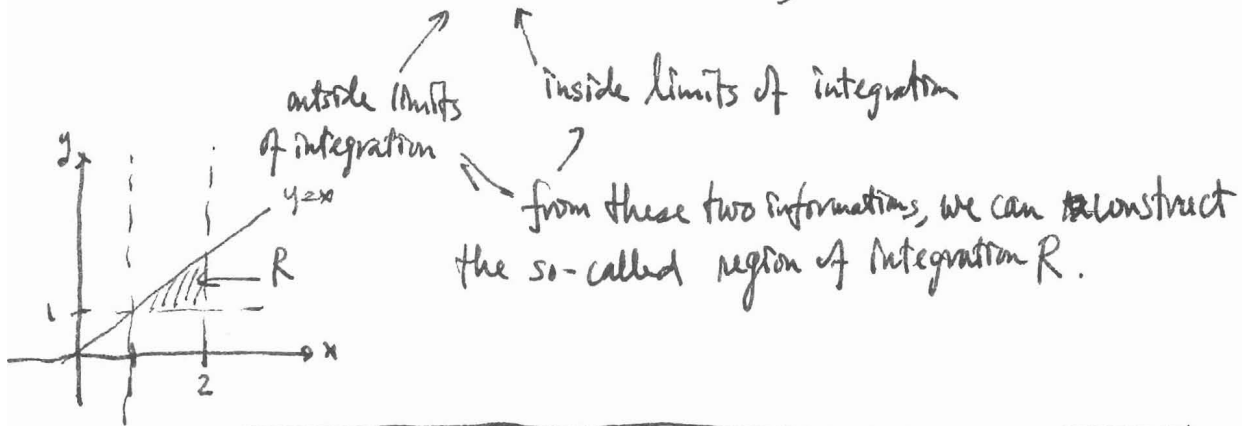 outside limits
of integration
inside limits of integration
from these two informations, we can construct
the so-called region of integration R.
y
y=x
R
1
x
2